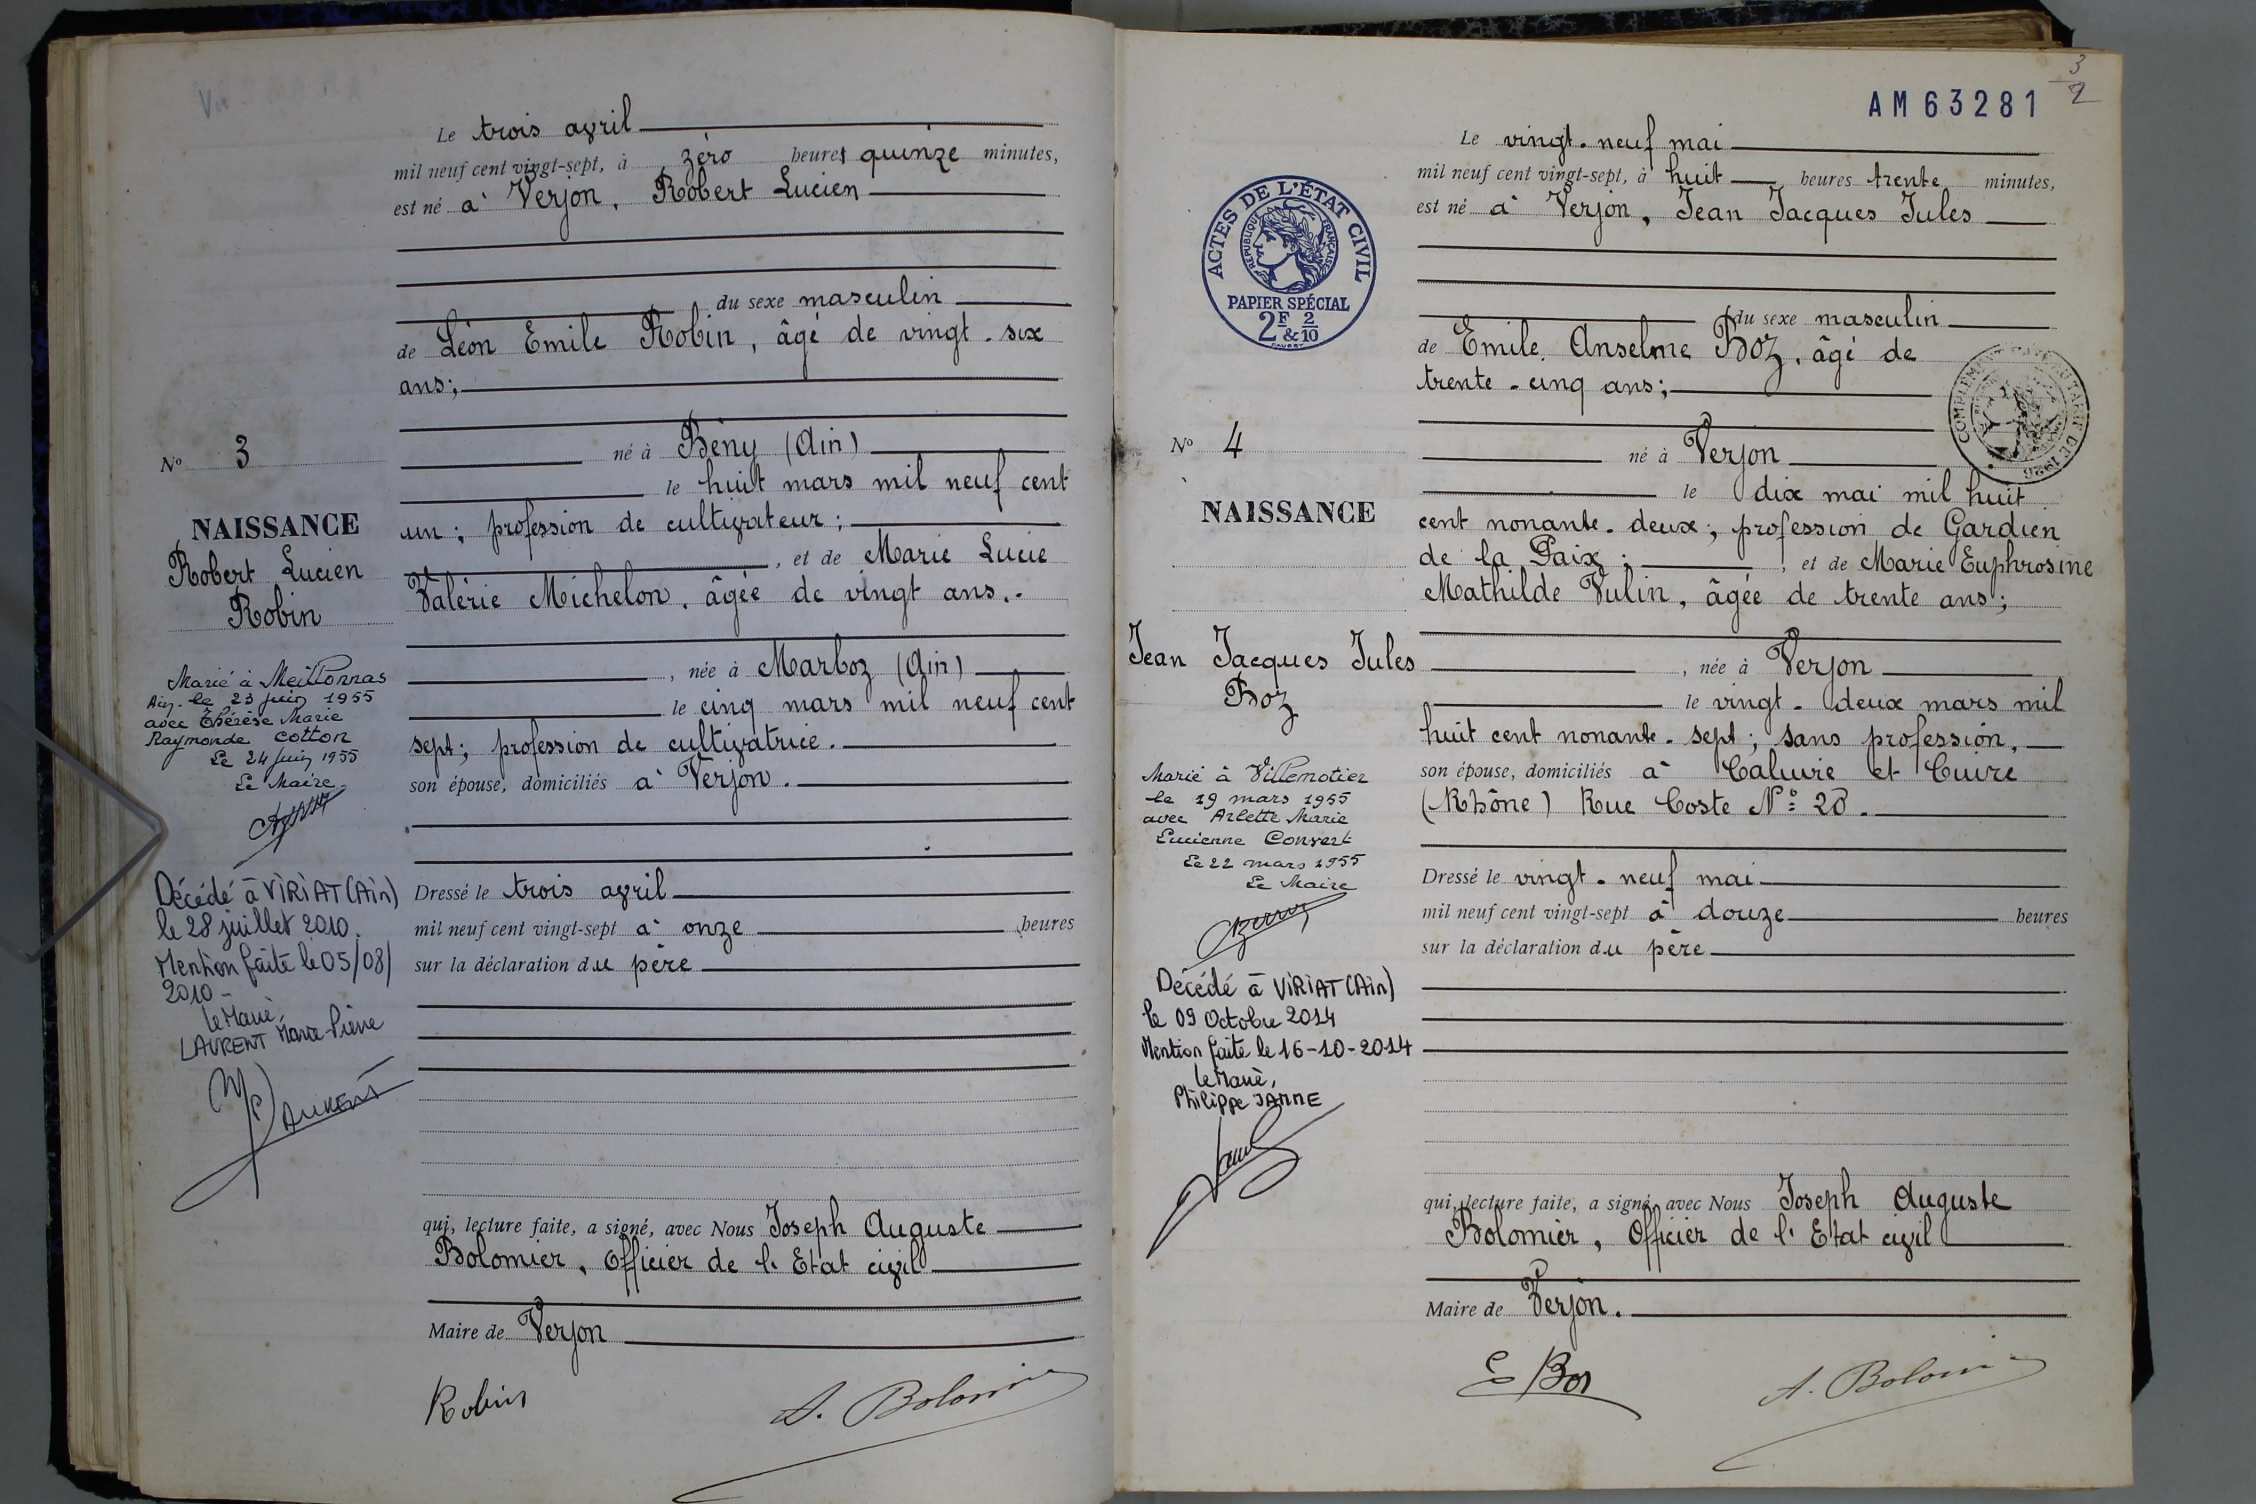 Le trois avril
mil neuf cent vingt-sept, à zéro heures quinze minutes,
est né à Verjon, Robert Lucien
du sexe masculin
de Léon Emile Robin, âgé de vingt-six
ans;
né à Bény (Ain)
le huit mars mil neuf cent
un; profession de cultivateur;
, et de Marie Lucie
Valérie Michelon, âgée de vingt ans.
, née à Marboz (Ain)
le cinq mars mil neuf cent
sept; profession de cultivatrice.
son épouse, domiciliés à Verjon.
Dressé le trois avril
mil neuf cent vingt-sept à onze heures
sur la déclaration du père
qui, lecture faite, a signé, avec Nous Joseph Auguste
Bolomier, Officier de l'Etat civil
Maire de Verjon
Robin
A. Bolomier
No 3
NAISSANCE
Robert Lucien
Robin
Marié à Meillonnas
Ain. le 23 juin 1955
avec Thérèse Marie
Raymonde Cotton
Le 24 juin 1955
Le Maire
Décédé à VIRIAT (Ain)
le 28 juillet 2010.
Mention faite le 05/08/
2010-
le Maire,
LAURENT Marie-Pierre
AM63281
3
2
Le vingt-neuf mai
mil neuf cent vingt-sept, à huit heures trente minutes,
est né à Verjon, Jean Jacques Jules
du sexe masculin
de Emile Anselme Boz, âgé de
trente-cinq ans;
né à Verjon
le dix mai mil huit
cent nonante-deux; profession de Gardien
de la Paix; , et de Marie Euphrosine
Mathilde Vulin, âgée de trente ans;
, née à Verjon
le vingt-deux mars mil
huit cent nonante-sept; sans profession,
son épouse, domiciliés à Caluire et Cuire
(Rhône) Rue Coste No 28.
Dressé le vingt-neuf mai
mil neuf cent vingt-sept à douze heures
sur la déclaration du père
qui, lecture faite, a signé, avec Nous Joseph Auguste
Bolomier, Officier de l'Etat civil
Maire de Verjon.
E Boz
A. Bolomier
ACTES DE L'ÉTAT CIVIL
RÉPUBLIQUE FRANÇAISE
PAPIER SPÉCIAL
2F & 2/10
No 4
NAISSANCE
Jean Jacques Jules
Boz
Marié à Villemotier
le 19 mars 1955
avec Arlette Marie
Lucienne Convert
Le 22 mars 1955
Le Maire
Décédé à VIRIAT (Ain)
le 09 Octobre 2014
Mention faite le 16-10-2014
le Maire,
Philippe JAMME